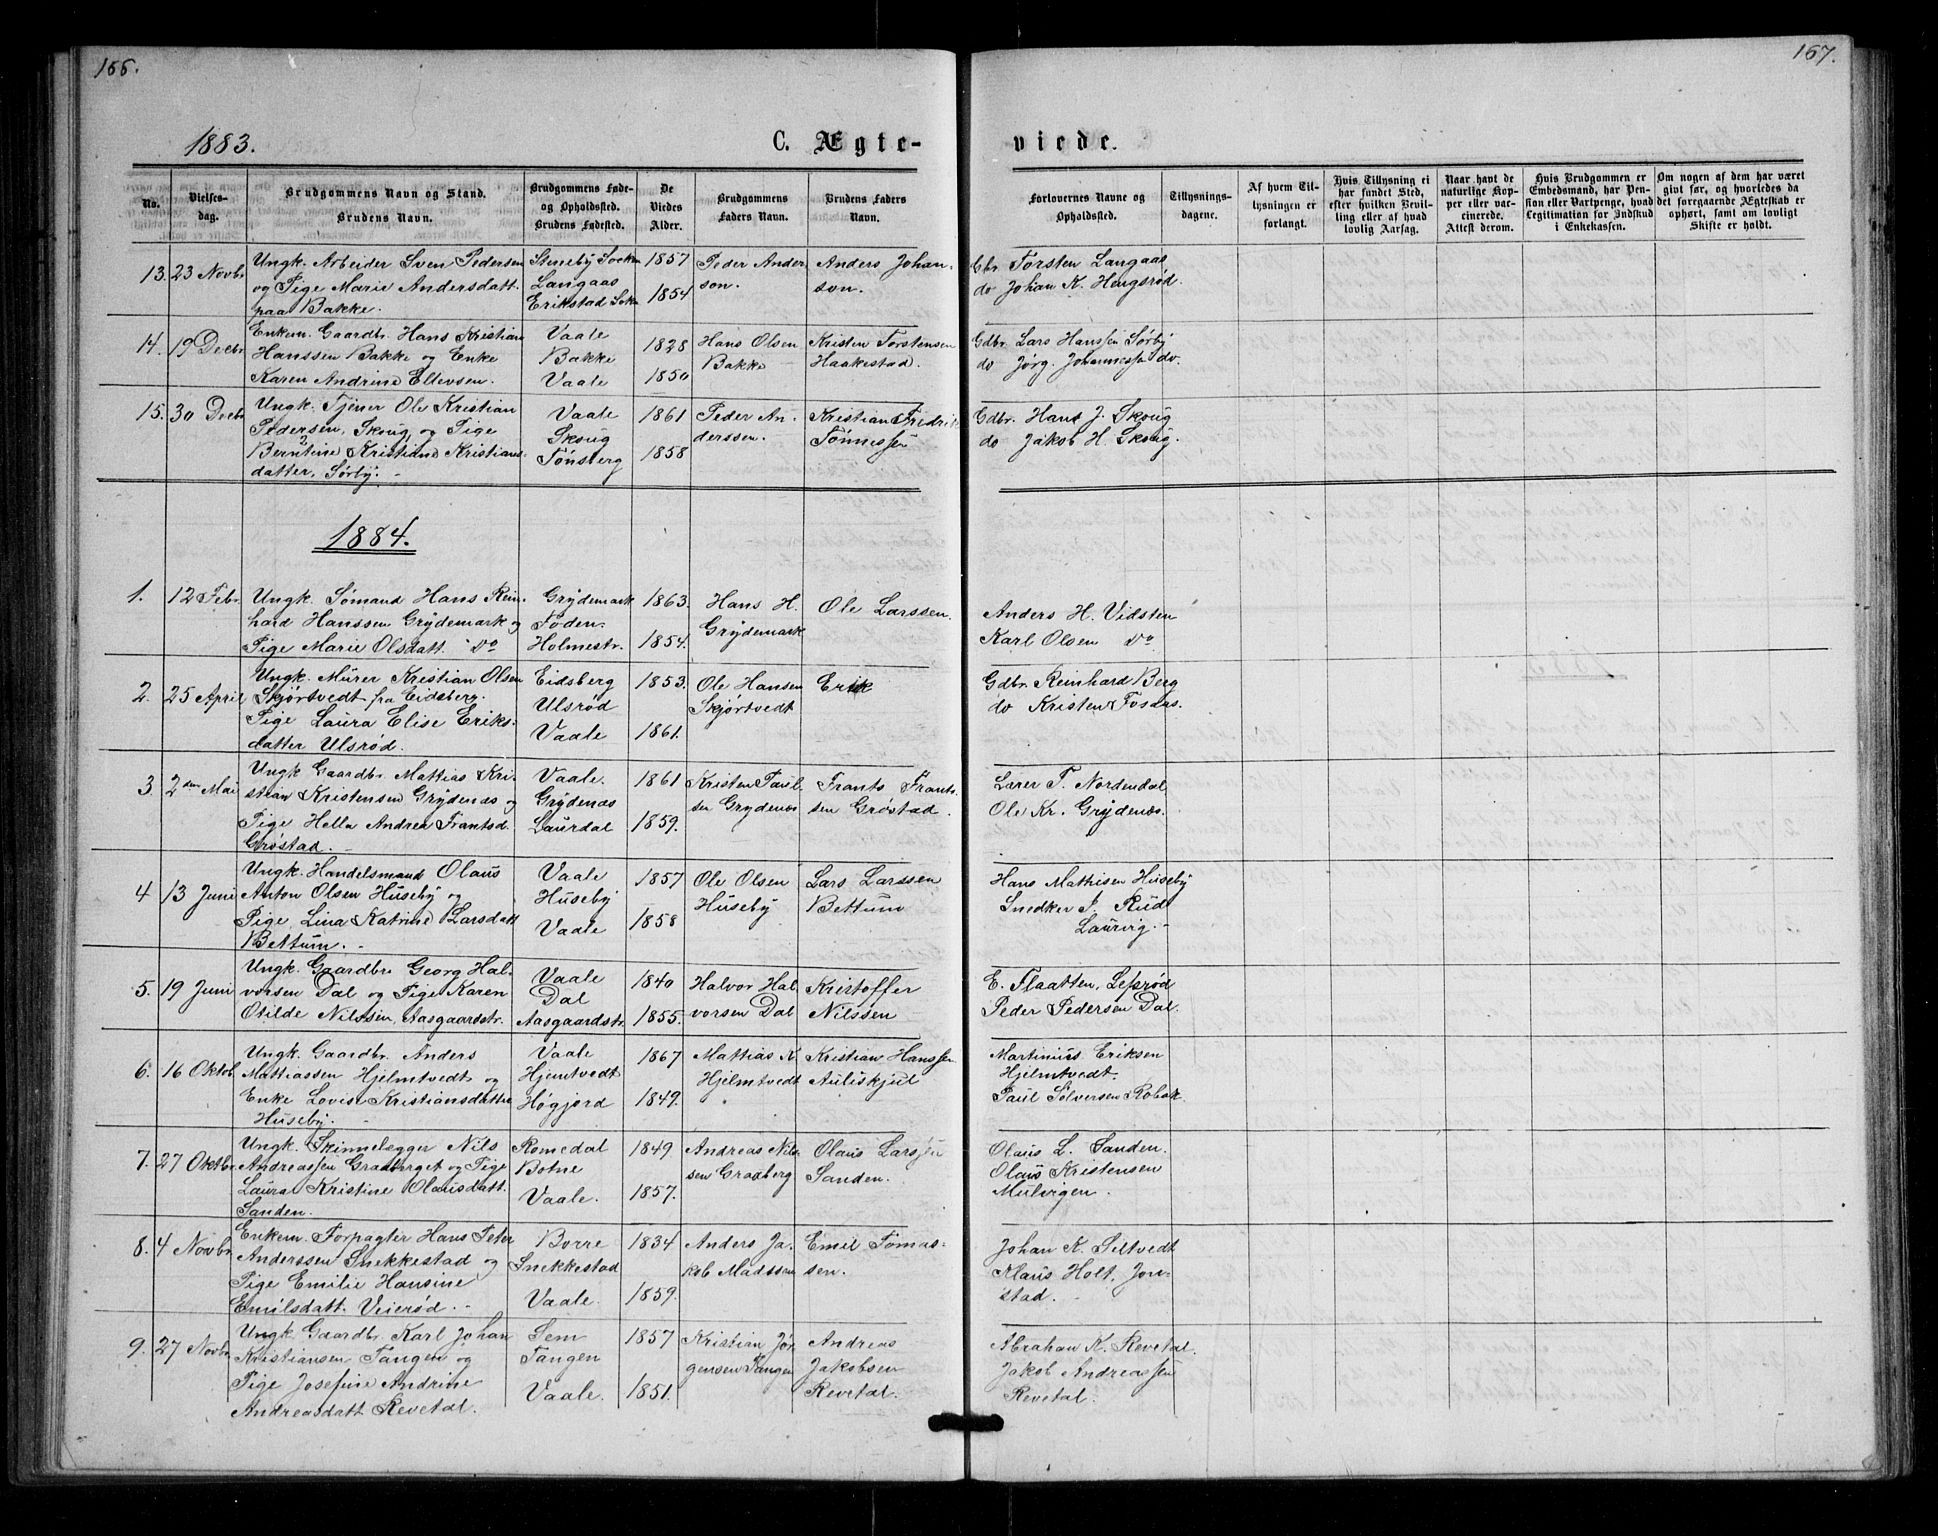 166.
1883.
C. Ægte-
No.
Vielses-
dag.
Brudgommens Navn og Stand.
Brudens Navn.
Brudgommens Føde-
og Opholdssted.
Brudens Fødested.
De
Viedes
Alder.
Brudgommens
Faders Navn.
Brudens Faders
Navn.
13. 23 Novbr
Ungk. Arbeider Sven Pedersen
og Pige Marie Andersdatt.
paa Bakke.
Steneby Sockn
Langaas
Erikstad Sokn
1857
1854
Peder Ander
son.
Anders Johan-
son.
14. 19 Decbr
Enkem. Gaardbr. Hans Kristian
Hanssen Bakke og Enke
Karen Andrine Ellevsen.
Vaale
Bakke
Vaale
1828
1850
Hans Olsen
Bakke
Kristen Torstensen
Haakestad.
15. 30 Decbr
Ungk. Tjener Ole Kristian
Pedersen, Skoug og Pige
Berntine Kristiane Kristians-
datter, Sørby.
Vaale
Skoug
Tønsberg
1861
1858
Peder An-
derssen.
Kristian Fredrik
Tønnessen
1884.
1. 12 Febr.
Ungk. Sømand Hans Rein-
hard Hanssen Grydemark og
Pige Marie Olsdatt. do
Grydemark
Føden-
Holmestr.
1863.
1854.
Hans H.
Grydemark
Ole Larssen
2. 25 April
Ungk. Murer Kristian Olsen
Skjørtvedt fra Eidsberg.
Pige Laura Elise Eriks-
datter Ulsrød.
Eidsberg
Ulsrød
Vaale
1853.
1861.
Ole Hansen
Skjørtvedt
Erik
3. 2den Mai
Ungk. Gaardbr. Mattias Kri-
stian Kristensen Grydenæs og
Pige Hella Andrea Frantsd.
Grøstad.
Vaale.
Grydenæs
Laurdal
1861
1859.
Kristen Paul-
sen Grydenæs
Frants Frants-
sen Grøstad.
4 13 Juni
Ungk. Handelsmand Olaus
Anton Olsen Huseby og
Pige Lina Katrine Larsdatt
Bettum.
Vaale
Huseby
Vaale
1857
1858
Ole Olsen
Huseby
Lars Larssen
Bettum
5. 19 Juni
Ungk. Gaardbr. Georg Hal-
vorsen Dal og Pige Karen
Otilde Nilssen, Aasgaardstr.
Vaale
Dal
Aasgaardstr.
1840
1855.
Halvor Hal
vorsen Dal
Kristoffer
Nilssen
6. 16 Oktob.
Ungk. Gaardbr. Anders
Mattiassen Hjelmtvedt og
Enke Lovise Kristiansdatter
Huseby.
Vaale
Hjemtvedt
Høgjord
1867
1849.
Mattias K
Hjelmtvedt
Kristian Hanssen
Auliskjul
7. 27 Oktbr.
Ungk. Skinnelægger Nils
Andreassen Graaberget og Pige
Laura Kristine Olausdatt.
Sanden.
Romedal
Botne
Vaale.
1849
1857.
Andreas Nils
sen Graaberg
Olaus Larssen
Sanden.
8. 4 Novbr.
Enkem. Forpagter Hans Peter
Anderssen Snekkestad og
Pige Emilie Hansine
Emilsdatt. Veierød.
Borre
Snekkestad
Vaale.
1834
1859.
Anders Ja-
kob Madssen
Emil Tomas-
sen.
9. 27 Novbr.
Ungk. Gaardbr. Karl Johan
Kristiansen Tangen og
Pige Josefine Andrine
Andreasdatt Revetal.
Sem
Tangen
Vaale.
1857
1851.
Kristian Jør
gensen Tangen
Andreas
Jakobsen
Revetal.
167.
viede.
Forlovernes Navne og
Opholdssted.
Tillysnings-
dagene.
Af hvem Til-
lysningen er
forlangt.
Hvis Tillysning ei
har fundet Sted,
efter hvilken Bevil-
ling eller af hvad
lovlig Aarsag.
Naar havt de
naturlige Kop-
per eller vac-
cinerede.
Attest derom.
Hvis Brudgommen er
Embedsmand, har Pen-
sion eller Vartpenge, hvad
Legitimation for Indskud
i Enkekassen.
Om nogen af dem har været
gift før, og hvorledes da
det foregaaende Ægteskab er
ophørt, samt om lovligt
Skifte er holdt.
Gbr. Torsten Langaas
do Johan K. Hengsrød.
Gdbr. Lars Hanssen Sørby
do Jørg. Johannessen do.
Gdbr. Hans J. Skoug
do Jakob H. Skoug.
Anders H. Vidsten
Karl Olsen do
Gdbr. Reinhard Berg
do Kristen Fosaas.
Lærer T. Nordendal
Ole Kr. Grydenæs.
Hans Mathisen Huseby
Snedker J. Rud
Laurvig.
E. Flaatten, Lefsrød
Peder Pedersen Dal.
Martinius Eriksen
Hjelmtvedt.
Paul Sølversen Robæk
Olaus L. Sanden.
Olaus Kristensen
Mulvigen.
Johan K. Siltvedt
Klaus Holt, Jon-
stad.
Abraham K. Revetal.
Jakob Andreassen
Revetal.